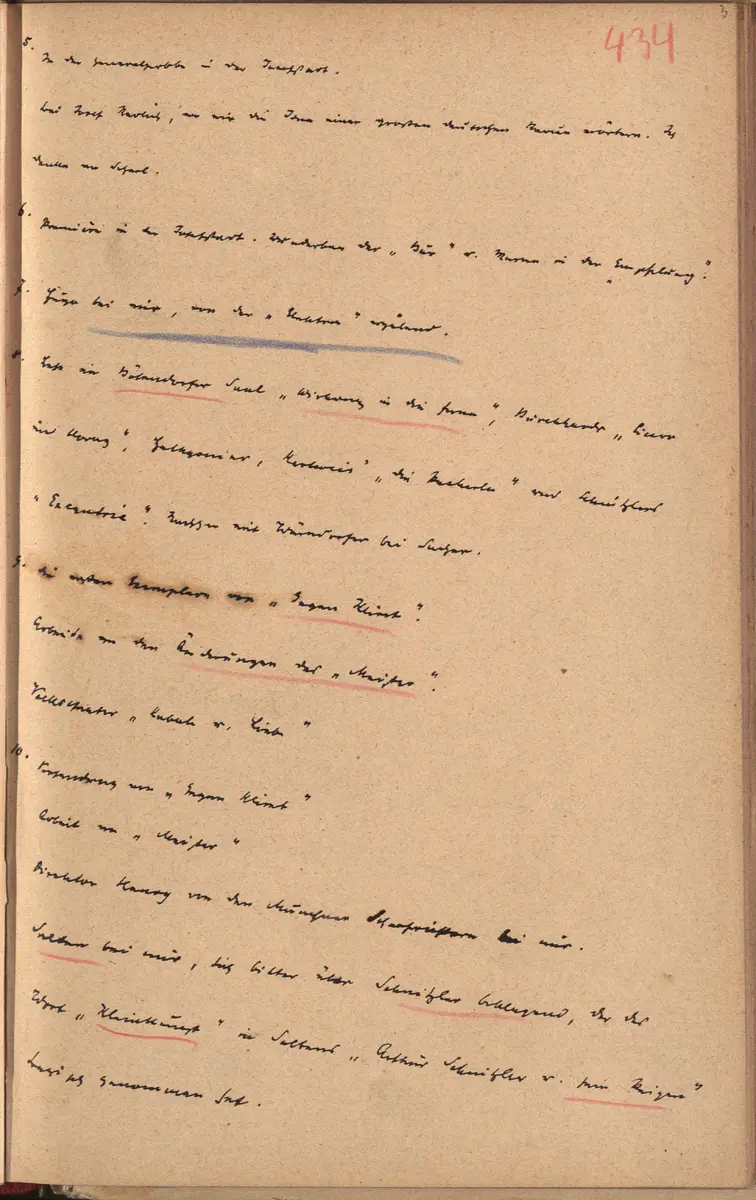 3
434
5.
In der Generalprobe in der Josefstadt.
Bei Karlweis, wo wir die Idee einer grossen deutschen Revue erörtern. Ich
denke an Scherl.
6.
Première in der Josefstadt. Wunderbar der „Bär“ u. Maran in der „Empfehlung“.
7.
Hugo bei mir, von der „Elektra“ erzälend.
8.
Lese im Bösendorfer Saal „Wirkung in die Ferne“, Burckhards „Cicero
und Horaz“, Karlweis' „die Packerln“ und Schnitzlers
„Excentric“. Nachher mit Wärndorfer bei Sacher.
9.
Die ersten Exemplare von „Gegen Klimt“.
Arbeite an den Änderungen des „Meister“.
Volkstheater „Kabale u. Liebe“
10.
Versendung von „Gegen Klimt“
Arbeit am „Meister“
Direktor von den Münchner Scharfrichtern bei mir.
Salten bei mir, sich bitter über Schnitzler beklagend, der das
Wort „Kleinkunst“ in Saltens „Arthur Schnitzler u. sein Reigen“
tragisch genommen hat.